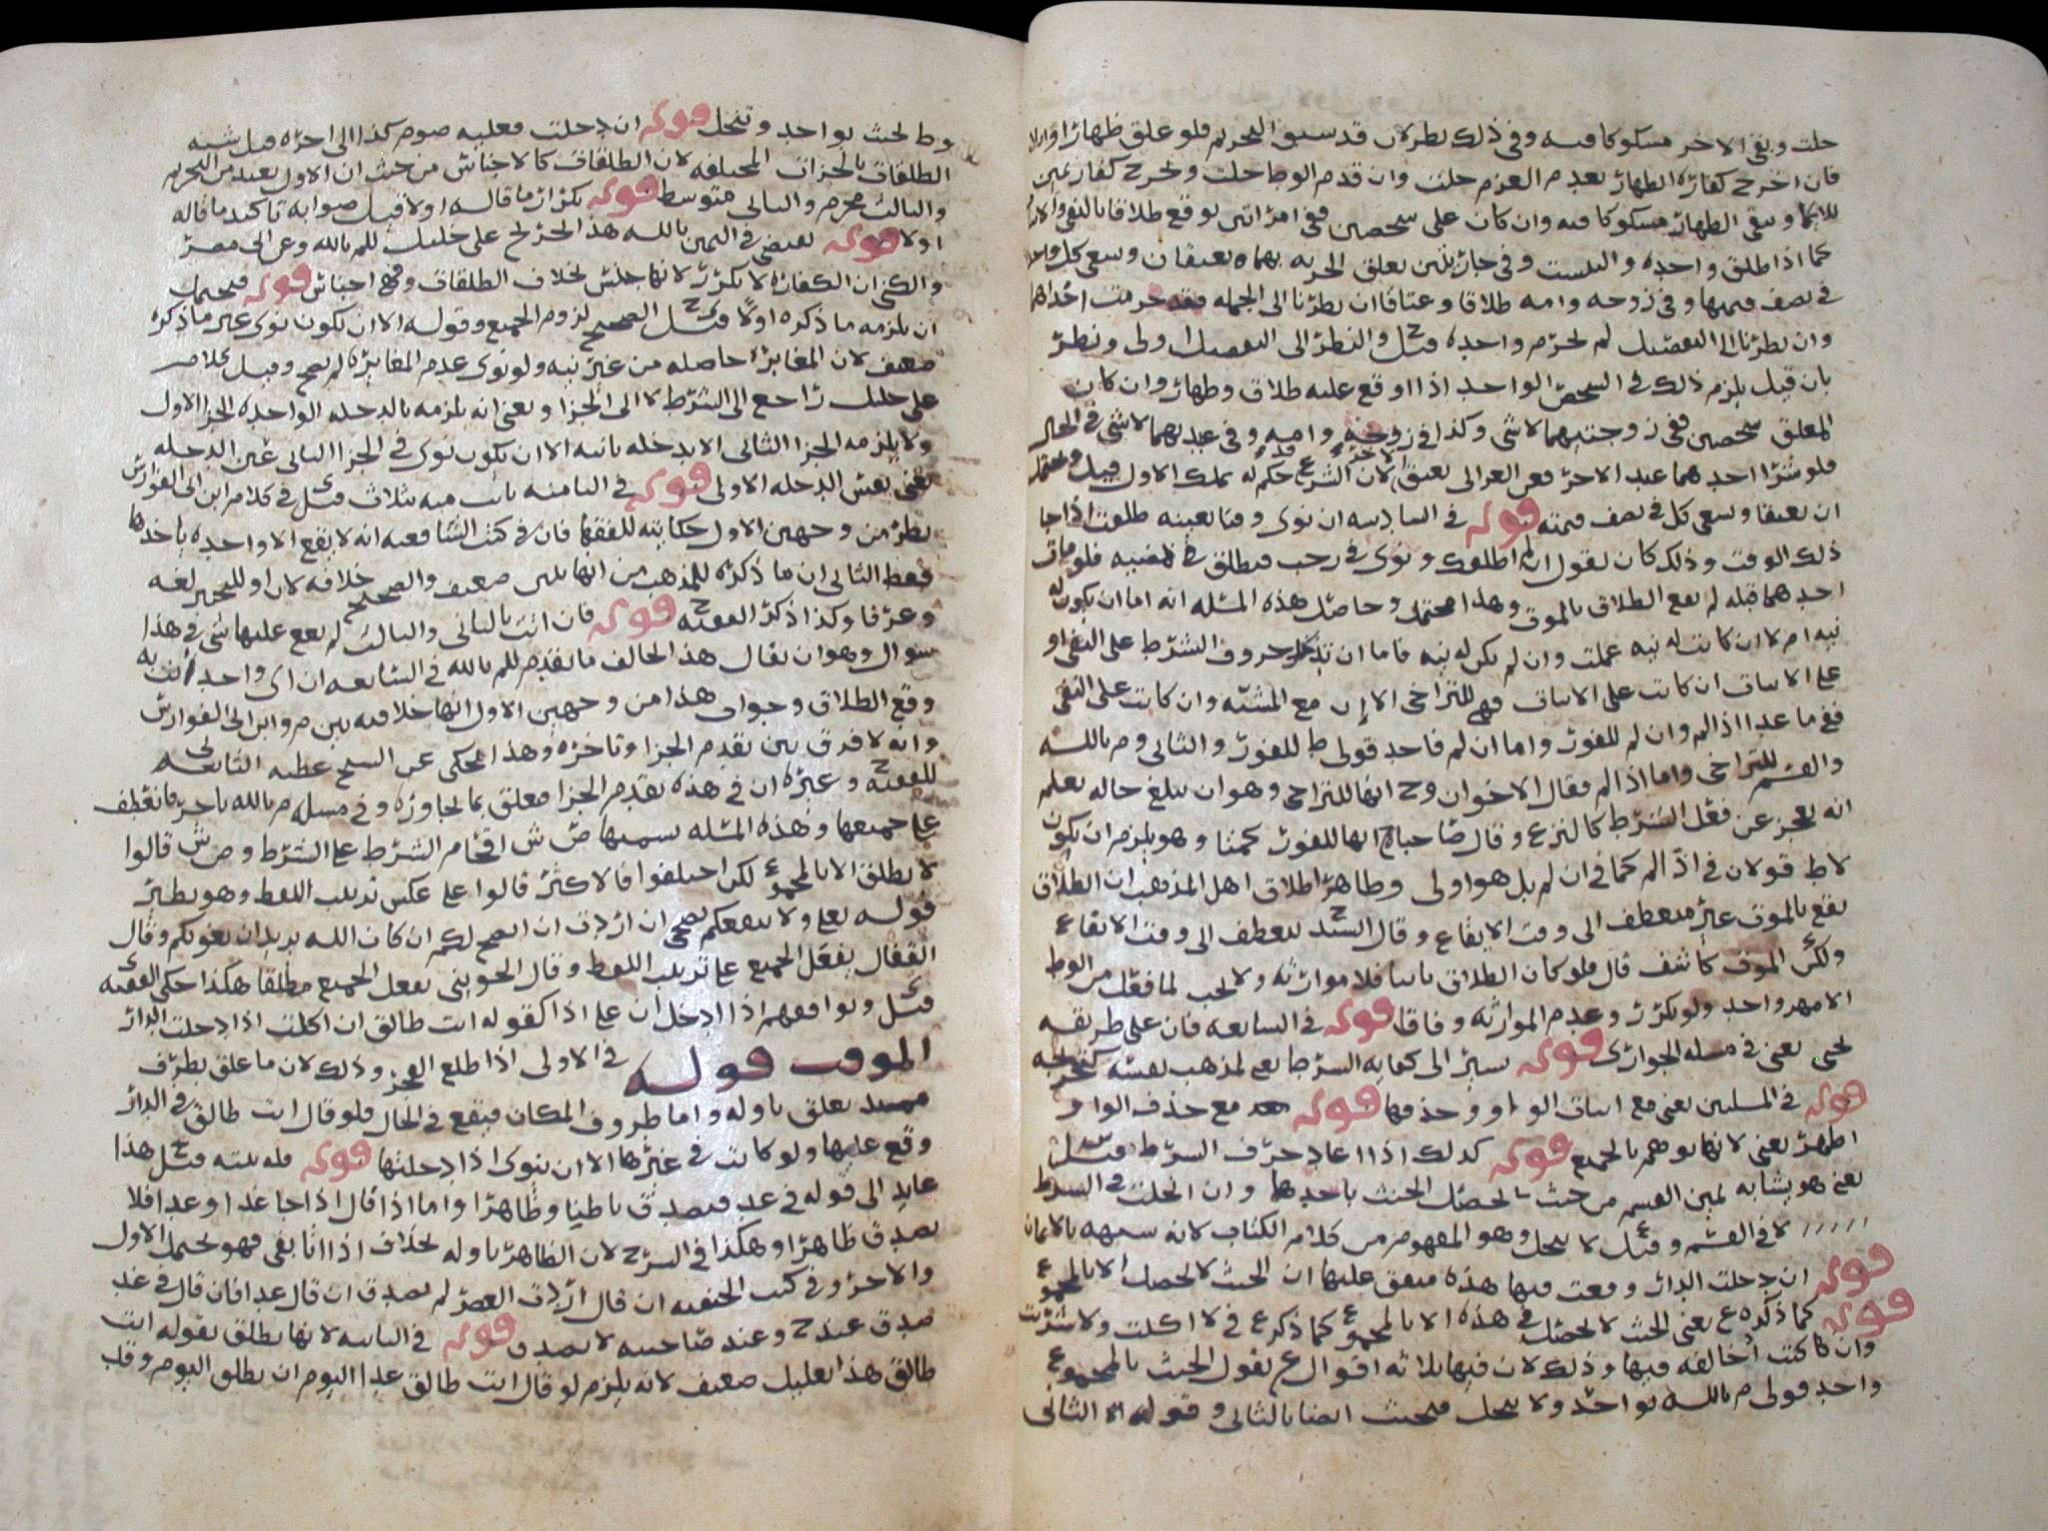 حلت وبقي الاخر مشكوكا فيه وفي ذلك نظر لان قد سبق التحريم فلو علق ظهارا
فان اخرج كفارة الظهار بعدم العزم حلت وان قدم الوطا حلت وخرج كفارتين
وبقي الظهار مشكوكا فيه وان كان على شخصين ففي امراتين يوقع طلاقا بالنفي
كما اذا طلق واحدة والتبست وفي جاريتين تعلق الحرية بهما يعتقان وتسعى كل
في نصف قيمتها وفي زوجه وامه طلاقا وعتاقا ان نظرنا الى الجمله فقد حرمت احداهما
وان نظرنا الى التفصيل لم تحرم واحدة قيل ح والنظر الى التفصيل اولى ونظر
بان قيل يلزم ذلك في الشخص الواحد اذا اوقع عليه طلاق وظهار وان كان
المعلق شخصين ففي زوجتيهما لا شي وكذا في زوجته وامه وفي عبديهما لا شي في الحال
فلو شرا احدهما عبد الاخر فعن الغزالي يعتق لان الشرع حكم له بملك الاول قيل
ان يعتقا ويسعى كل في نصف قيمته قوله في السادسه ان نوى وقتا بعينه طلقت اذا جا
ذلك الوقت وذلك كان يقول ان لم اطلقك ونوى في رجب فيطلق في مضيه فلو مات
احدهما قبله لم يقع الطلاق بالموت وهذا محتمل وحاصل هذه المسله انه اما ان يكون له
نيه ام لا ان كانت له نيه عملت وان لم يكن له نيه فاما ان تدخل حروف الشرط على النفي او
على الاثبات ان كانت على الاثبات فهي للتراخي الا ان مع المشيه وان كانت على النفي
ففي ما عدا اذا لم وان لم للفور واما ان لم فاحد قولي ط للفور والثاني وم بالله
والقسم للتراخي واما اذا لم فقال الاخوان وح انها للتراخي وهو ان يبلغ حاله يعلم
انه يعجز عن فعل الشرط كالنزع وقال صاحباه انها للفور كمتا وهو يلزم ان يكون
لا ط قولان في اذا لم كما في ان لم بل هو اولى وظاهر اطلاق اهل المذهب ان الطلاق
يقع بالموت غير منعطف الى وقت الايقاع وقال السيد ح ينعطف الى وقت الايقاع
ولكن الموت كاشف قال فلو كان الطلاق باينا فلا موارثه ولا يجب لما فعل من الوط
الا مهر واحد ولو تكرر وعدم الموارثه وفاقا قوله في السابعه فان على طريقه
يحي يعني في مسله الجوازي قوله يشير الى كفايه الشرط يعني لمذهب نفسه
قوله في المسلتين يعني مع اثبات الواو وحذفها قوله مع حذف الواو
اظهر يعني لانها توهم بالجميع قوله كذلك اذا اعاد حرف الشرط قيل س
يعني هو يشابه لمين القسم من حيث يحصل الحنث باحدها وان انحلت في الشرط
لا في القسم وقيل ع لا ينحل وهو المفهوم من كلام الكتاب لانه شبهه بالايمان
قوله ان دخلت الدار وقعت فيها هذه متفق عليها ان الحنث لا يحصل الا بالمجموع
قوله كما ذكره ع يعني الحنث لا يحصل في هذه الا بالمجموع كما ذكر ع في لا اكلت ولا شربت
وان كانت مخالفه فيها وذلك لان فيها ثلاثه اقوال ع يقول الحنث بالمجموع
واحد قولي م بالله بواحد ولا ينحل فيحنث ايضا بالثاني وقوله الثاني
وط يحنث بواحد وتنحل قوله ان دخلت فعليه صوم كذا الى اخره قيل شبه
الطلقات بالجزات المختلفه لان الطلقات كالاجناس من حيث ان الاول يفيد من التحريم
والثالث محرم والثاني متوسط قوله تكرار ما قاله اولا قيل صوابه تاكيد ما قاله
اولا قوله يقتضي في اليمين بالله هذا تخريج على خليل للم بالله وعن ابي مضر
والكني ان الكفارة لا تكرر لانها جنس بخلاف الطلقات فهي اجناس قوله فيحتمل
ان يلزمه ما ذكره اولا قيل ح الصحيح لزوم الجميع وقوله الا ان يكون نوى غير ما ذكره
ضعيف لان المغايرة حاصله من غير نيه ولو نوى عدم المغايرة لم يصح وقيل كلام
علي خليل راجع الى الشرط لا الى الجزا ويعني انه يلزمه بالدخله الواحدة الجزا الاول
ولا يلزمه الجزا الثاني الا بدخله ثانيه الا ان يكون نوى في الجزا الثاني غير الدخله
يعني نفس الدخله الاولى قوله في الثامنه بانت منه بثلاث قيل ى في كلام ابن ابي الفوارس
نظر من وجهين الاول حكايته للفقها فان في كتب الشافعيه انه لا يقع الا واحدة باحدها
فقط الثاني ان ما ذكره للمذهب من انها تلبس ضعيف والصحيح خلافه لان او للتخيير لغه
وعرفا وكذا ذكر الفقيه ح قوله فان اتت بالثاني والثالث لم يقع عليها شي في هذا
سوال وهو ان يقال هذا يخالف ما تقدم للم بالله في السابعه ان اي واحد اتت به
وقع الطلاق وجواب هذا من وجهين الاول انها خلافيه بين م وابن ابي الفوارس
وانه لا فرق بين تقدم الجزا وتاخره وهذا يحكى عن الشيخ عطيه الثاني
للفقيه ح وغيره ان في هذه تقدم الجزا فعلق بما يجاوزه وفي مسله م بالله تاخر فانعطف
على جميعها وهذه المسله سميها ص ش اقحام الشرط على الشرط و ص ش قالوا
لا تطلق الا بالمجموع لكن اختلفوا فالاكثر قالوا على عكس ترتيب اللفظ وهو نظير
قوله تعالى ولا ينفعكم نصحي ان اردت ان انصح لكم ان كان الله يريد ان يغويكم وقال
القفال بفعل الجميع على ترتيب اللفظ وقال الجويني بفعل الجميع مطلقا هكذا حكى الفقيه
قيل ى ويوافقهم اذا ادخل ان على اذا كقوله انت طالق ان اكلت اذا دخلت الدار
الموقت قوله في الاولى اذا طلع الفجر وذلك لان ما علق بطرف
تعلق باوله واما ظروف المكان فيقع في الحال فلو قال انت طالق في الدار
وقع عليها ولو كانت في غيرها الا ان ينوى اذا دخلتها قوله فله نيته قيل ح هذا
عايد الى قوله في غد فيصدق باطنا وظاهرا واما اذا قال اذا جا غدا وغدا فلا
يصدق ظاهرا وهكذا في الشرح لان الظاهر باوله بخلاف اذا اتا بفي فهو يحتمل الاول
والاخر وفي كتب الحنفيه ان قال اردت العصر لم يصدق ان قال غدا فان قال في غد
صدق عند ح وعند صاحبيه لا يصدق قوله في الثانيه لانها تطلق بقوله انت
طالق هذا تعليل ضعيف لانه يلزم لو قال انت طالق غدا اليوم ان تطلق اليوم وقد